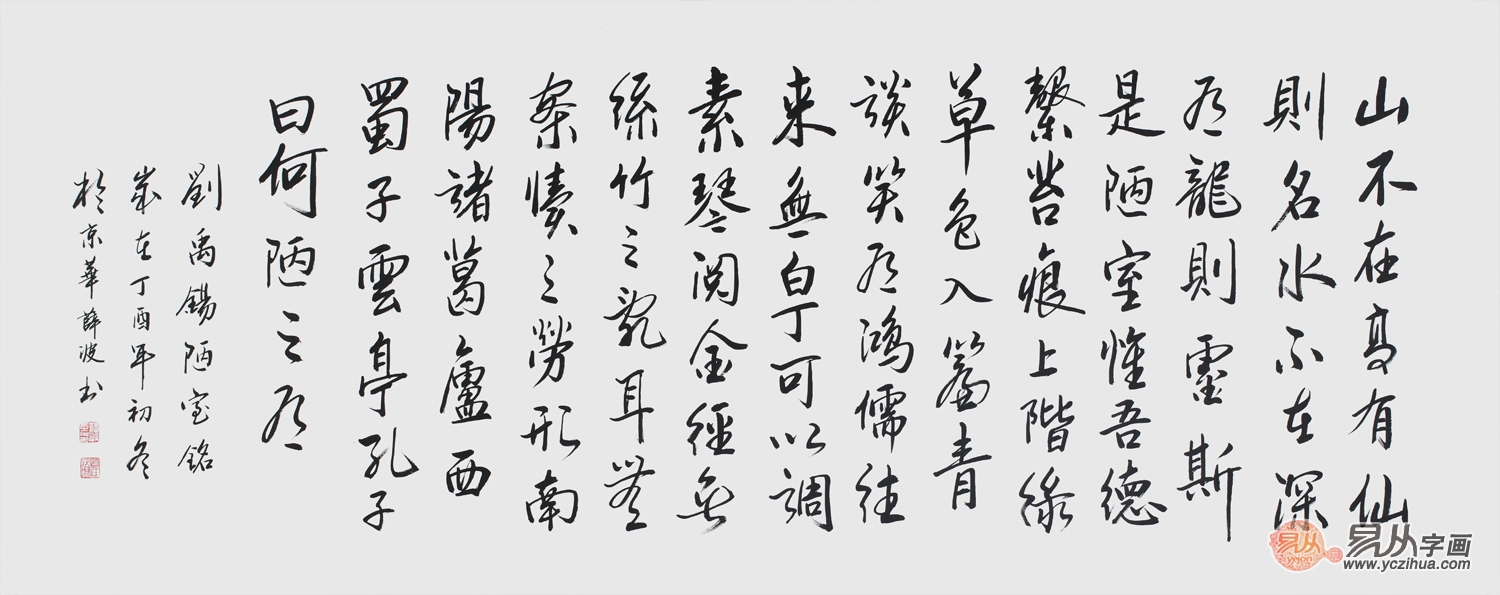 山不在高有仙
則名水不在深
有龍則靈斯
是陋室惟吾德
馨苔痕上階緑
草色入簾青
談笑有鴻儒往
来無白丁可以調
素琴閲金經無
絲竹之亂耳無
案牘之勞形南
陽諸葛廬西
蜀子雲亭孔子
曰何陋之有
劉禹錫陋室銘
歲在丁酉年初冬
於京華薛波书
易从
易从字画
www.yczihua.com